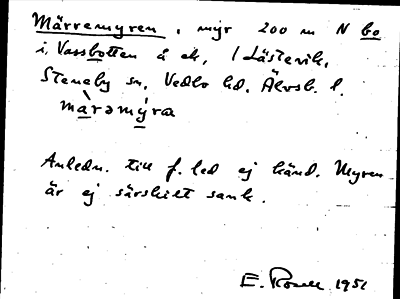 Märremyren, myr 200 m N bo
i Vassbotten å ek, i Lästevik,
Steneby sn, Vedbo hd, Älvsb. l.
màrəmýra
Anledn. till f. led ej känd. Myren
är ej särskilt sank.
E. 1951